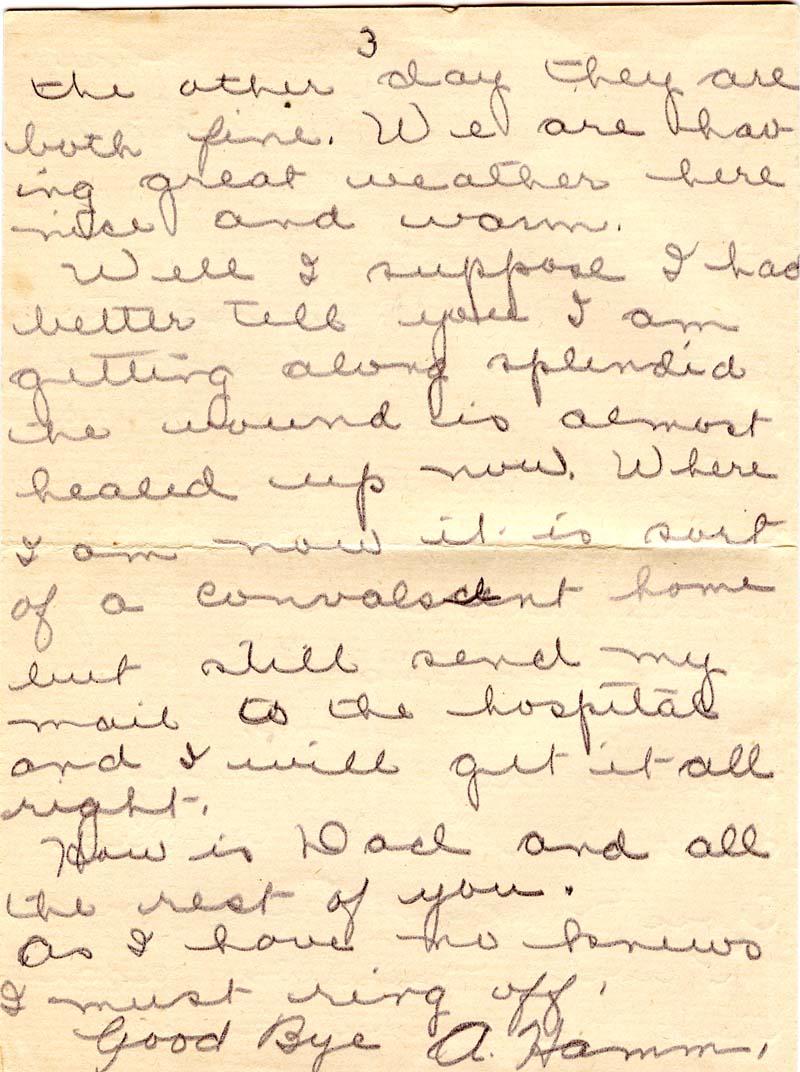 3
the other day they are
both fine. We are hav
ing great weather here
nice and warm.
Well I suppose I had
better tell you I am
getting along splendid
the wound is almost
healed up now. Where
I am now it is sort
of a convalscent home
but still send my
mail to the hospital
and I will get it all
right.
How is Dad and all
the rest of you.
As I have no knews
I must ring off.
Good Bye A. Hamm.